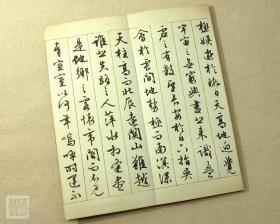 極娛遊於暇日天高地迥覺
宇宙之無窮興盡悲來識盈
虛之有數望長安於日下指吳
會於雲間地勢極而南溟深
天柱高而北辰遠關山難越
誰悲失路之人萍水相逢盡
是他鄉之客懷帝閽而不見
奉宣室以何年嗚呼時運不